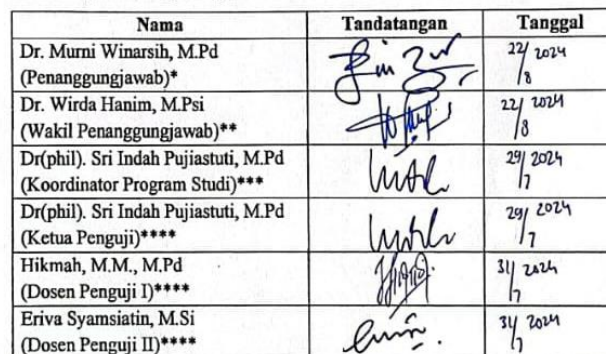 Nama Tandatangan Tanggal
Dr. Murni Winarsih, M.Pd
(Penanggungjawab)*
22/8 2024
Dr. Wirda Hanim, M.Psi
(Wakil Penanggungjawab)**
22/8 2024
Dr(phil). Sri Indah Pujiastuti, M.Pd
(Koordinator Program Studi)***
29/7 2024
Dr(phil). Sri Indah Pujiastuti, M.Pd
(Ketua Penguji)****
29/7 2024
Hikmah, M.M., M.Pd
(Dosen Penguji I)****
31/7 2024
Eriva Syamsiatin, M.Si
(Dosen Penguji II)****
31/7 2024